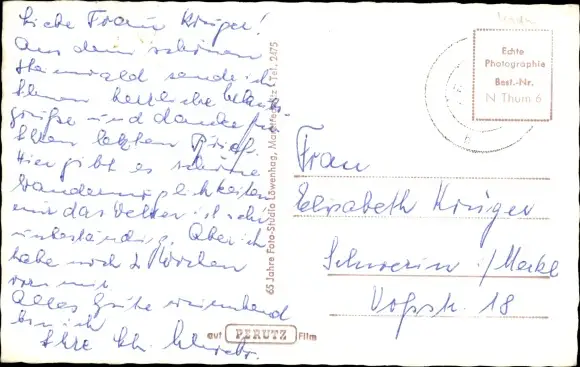 Liebe Frau Krüger!
Aus dem schönen
sende ich
Ihnen herzliche
grüße und danke für
Ihren letzten Brief.
Hier gibt es schöne
Wandermöglichkeiten
nur das Wetter ist sehr
unbeständig. Aber ich
habe noch 2 Wochen
vor mir
Alles Gute wünschend
bin ich
Ihre
65 Jahre Foto-Studio Löwenhag, Marktredwitz · Tel. 2475
auf PERUTZ Film
Echte
Photographie
Best.-Nr.
N Thum 6
Frau
Elisabeth Krüger
Schwerin i/Meckl
Voßstr. 18